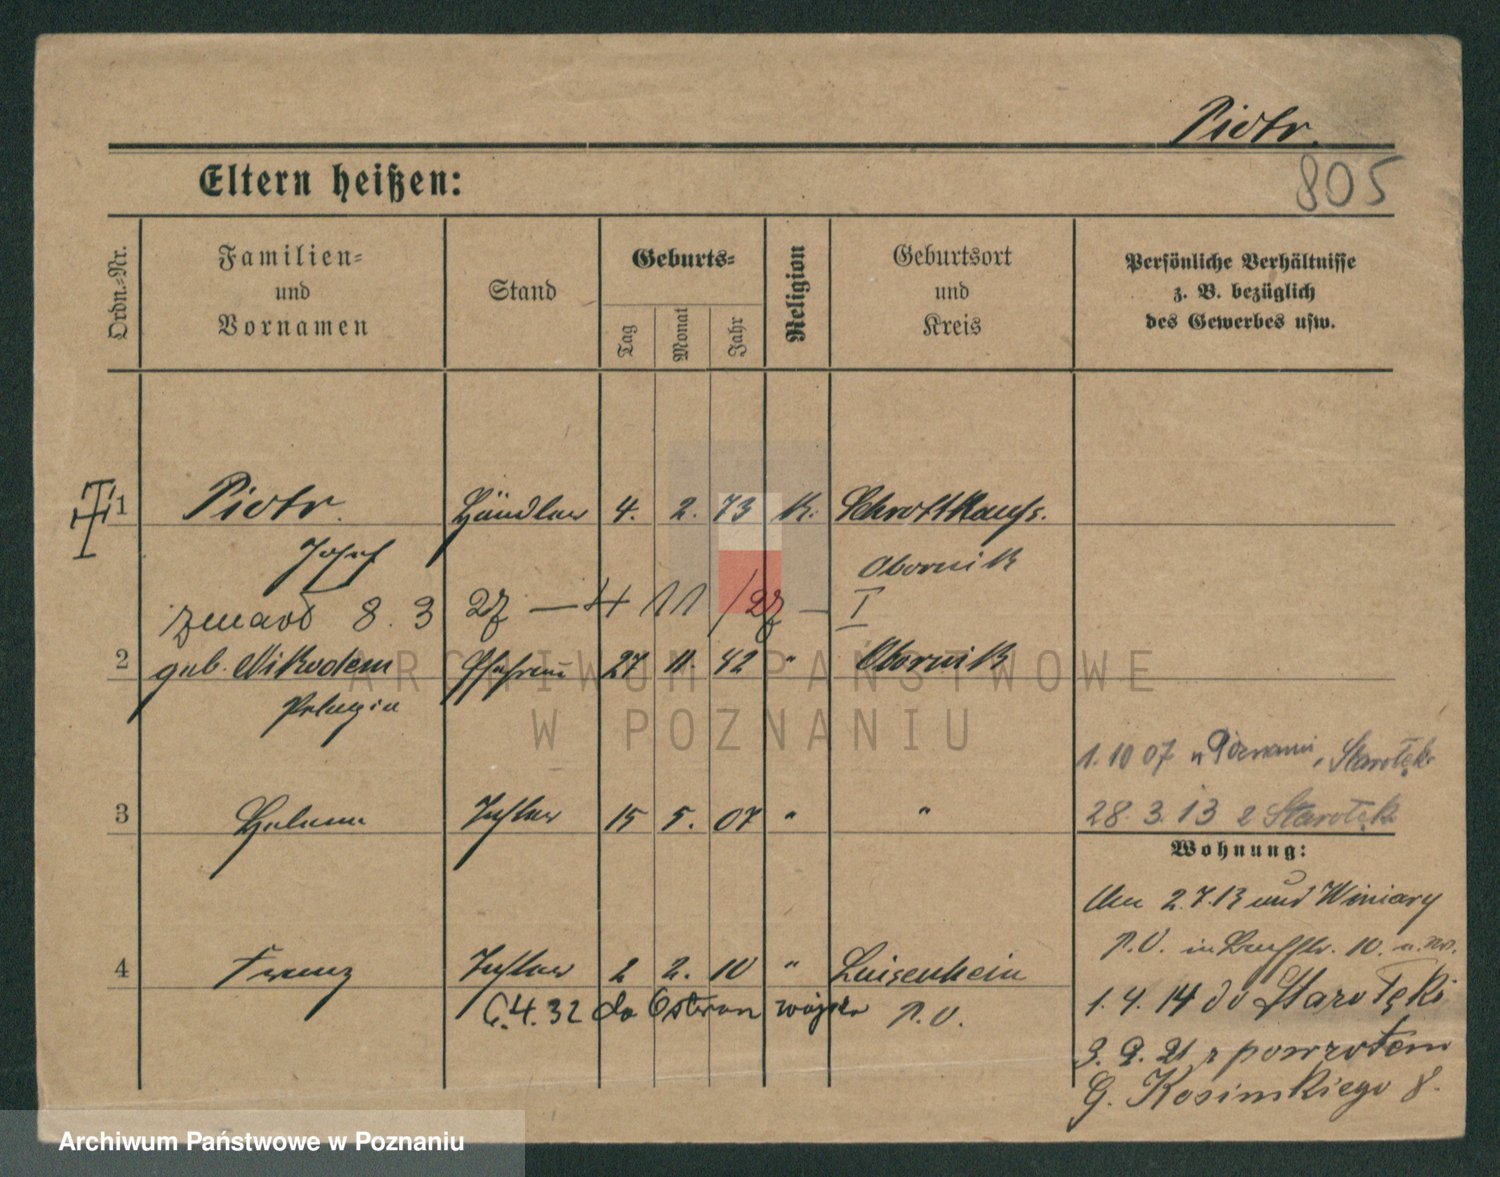 Piotr.
805
Eltern heißen:
Ordn.-Nr.
Familien- und Vornamen
Stand
Geburts-
Tag
Monat
Jahr
Religion
Geburtsort und Kreis
Persönliche Verhältnisse z. B. bezüglich des Gewerbes usw.
1 Piotr. Händler 4. 2. 73 K.
Josef Obornik
zmarł 8. 3
2 geb. Nikodem Ehefrau 27 11. 42 " Obornik
Pelagia
1. 10 07 Poznani, Starołęka
3 Helena Tochter 15 5. 07 " "
28. 3. 13 z Starołęka
Wohnung:
Am 2.7.13 und Winiary
P.O. in 10.
4 Franz 2 2. 10 " Luisenhein
P.O.
6.4.32 do Ostrów wojsko
1. 4. 14 do Starołęki
3. 9. 21 z powrotem
G. Kosinskiego 8.
ARCHIWUM PAŃSTWOWE
W POZNANIU
Archiwum Państwowe w Poznaniu